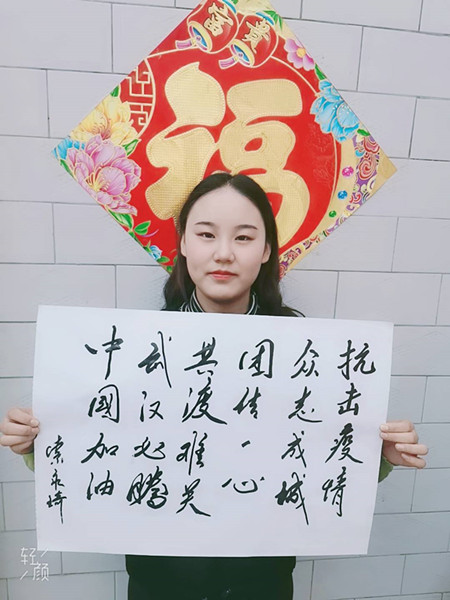 富貴
福
抗击疫情
众志成城
团结一心
共渡难关
武汉必勝
中國加油
轻颜